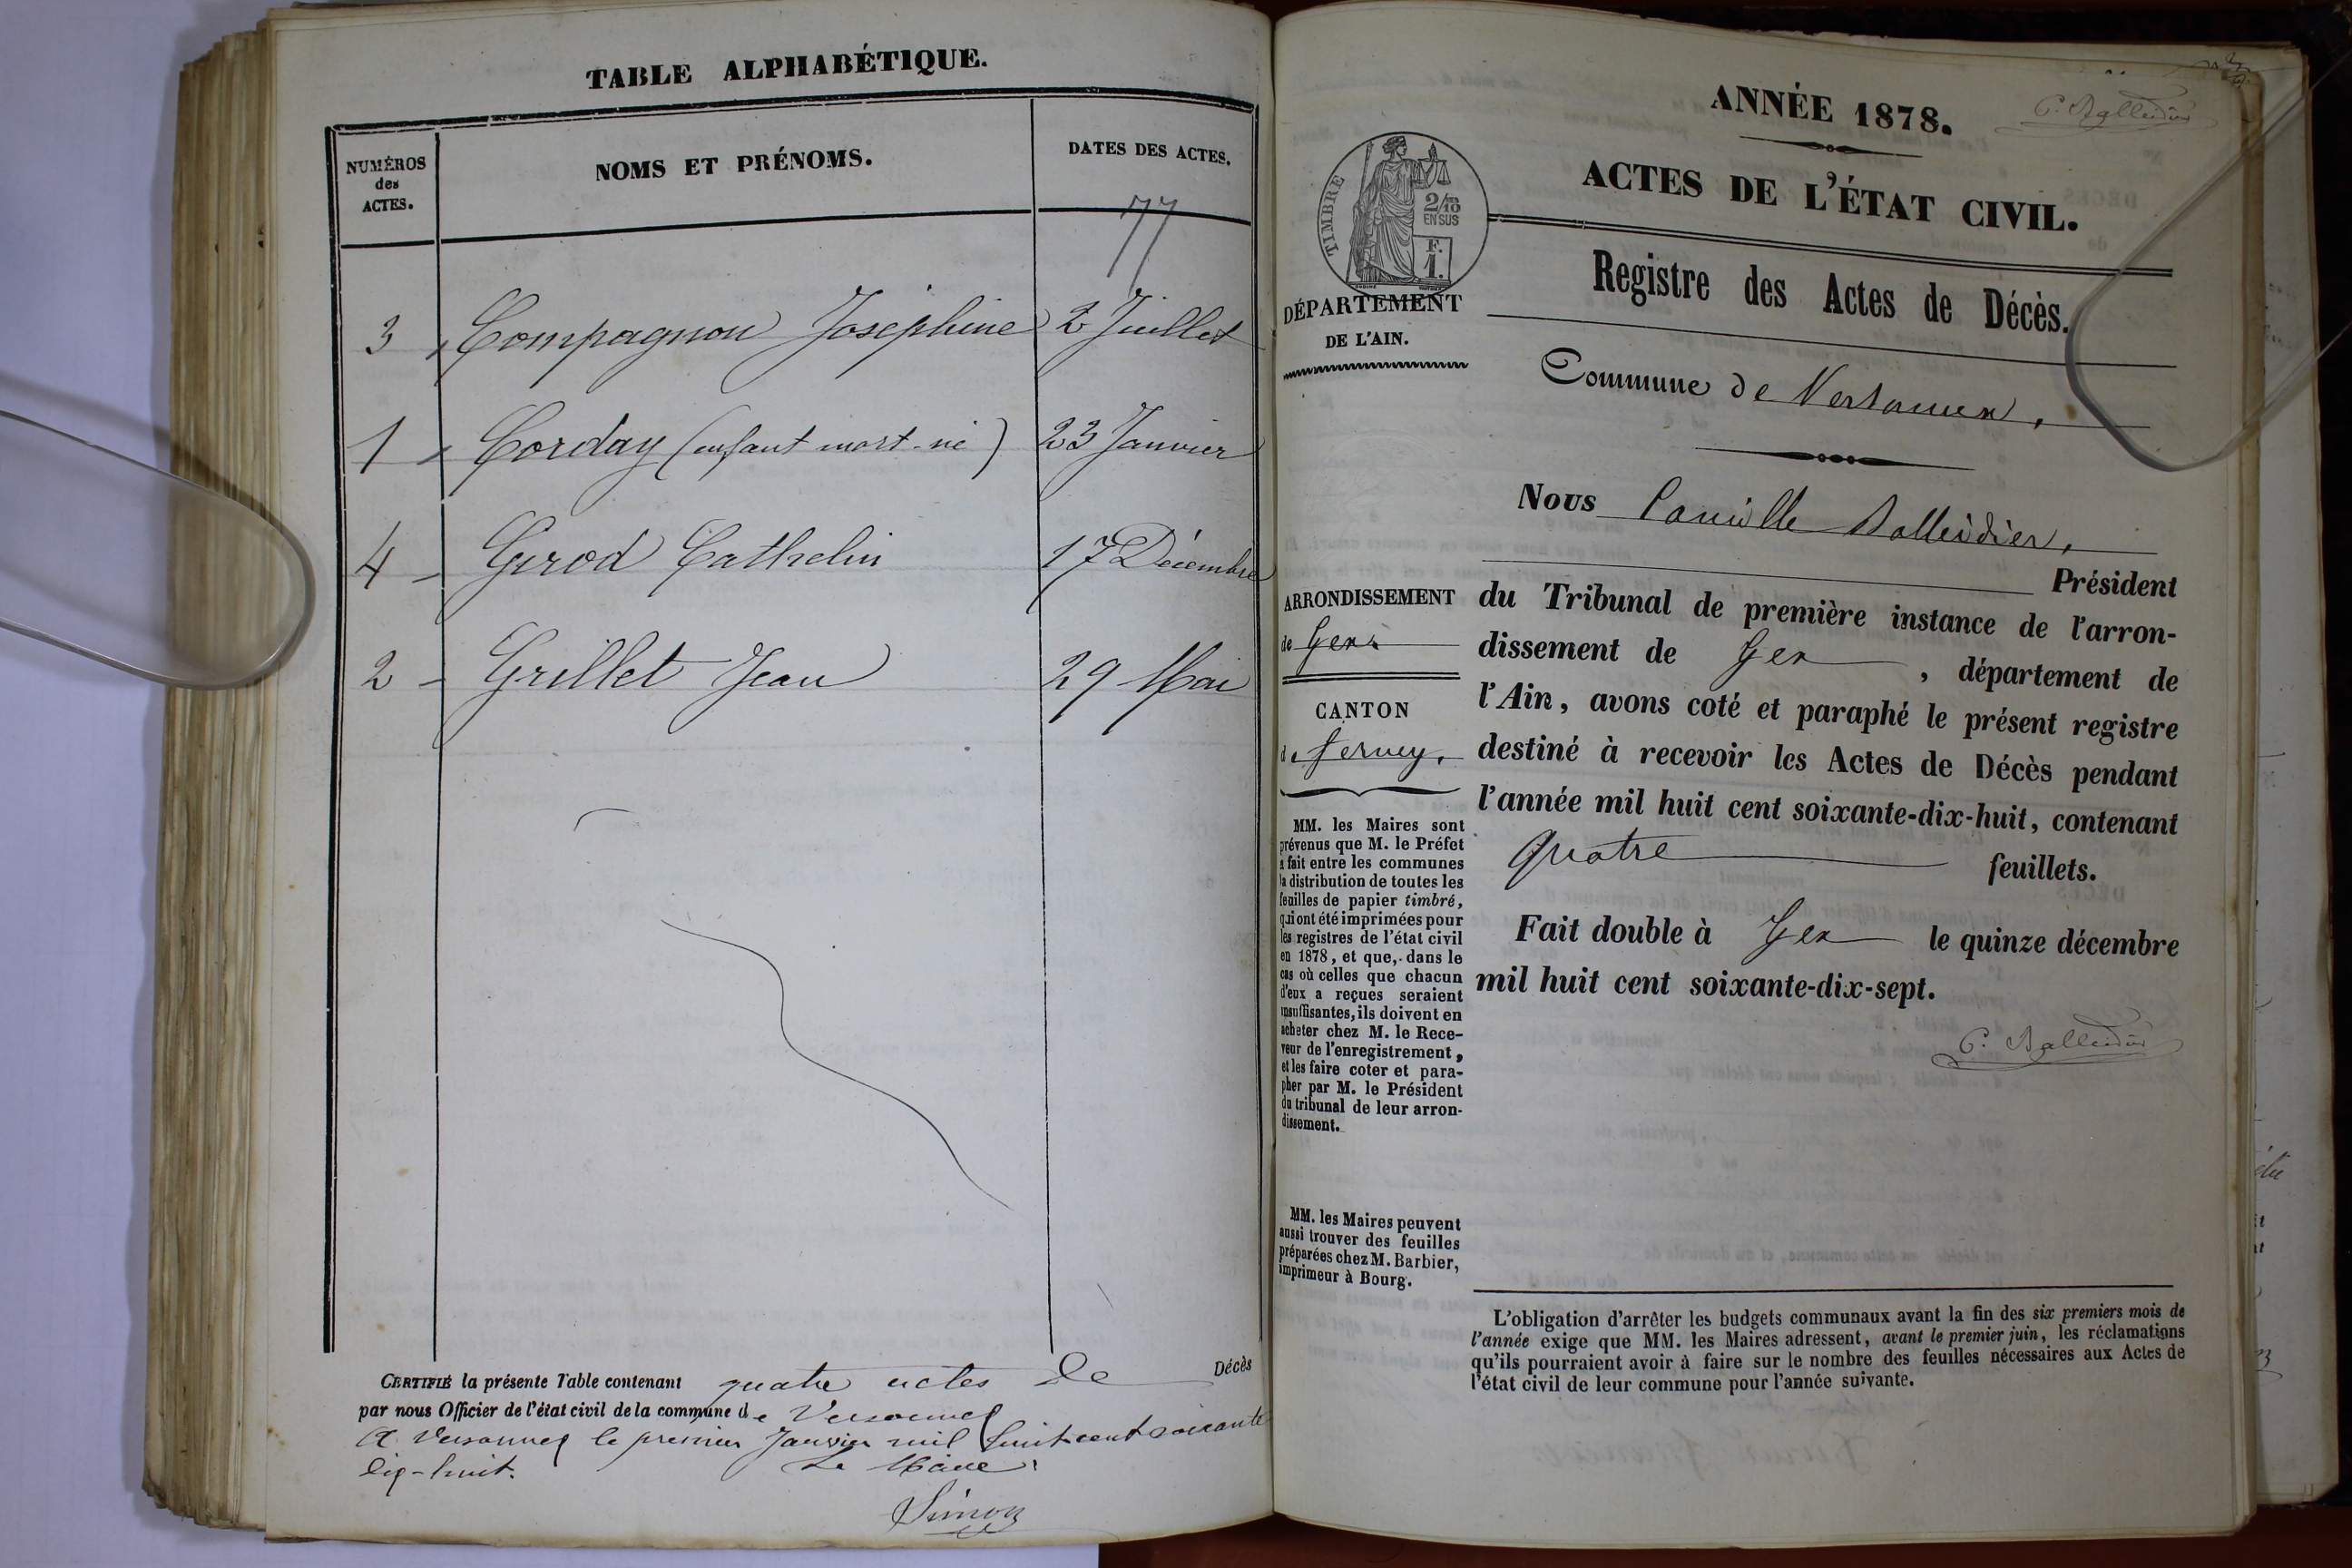 TABLE ALPHABÉTIQUE.
NUMÉROS
des
ACTES.
NOMS ET PRÉNOMS.
DATES DES ACTES.
77
3 Compagnon Joséphine 2 Juillet
1 Corday (enfant mort-né) 23 Janvier
4 - Girod Cathelin 17 Décembre
2 - Grillet Jean 29 Mai
CERTIFIÉ la présente Table contenant quatre actes de Décès
par nous Officier de l'état civil de la commune de Versonnex
A Versonnex le premier Janvier mil huit cent soixante
dix-huit. Le Maire
Simon
C. Balleidier
ANNÉE 1878.
ACTES DE L'ÉTAT CIVIL.
TIMBRE
2/10
EN SUS
F.
1.
DÉPARTEMENT
DE L'AIN.
Registre des Actes de Décès.
Commune de Versonnex.
Nous Camille Balleidier,
Président
ARRONDISSEMENT
de Gex
CANTON
de Ferney.
du Tribunal de première instance de l'arron-
dissement de Gex, département de
l'Ain, avons coté et paraphé le présent registre
destiné à recevoir les Actes de Décès pendant
l'année mil huit cent soixante-dix-huit, contenant
Quatre feuillets.
Fait double à Gex le quinze décembre
mil huit cent soixante-dix-sept.
C. Balleidier
MM. les Maires sont
prévenus que M. le Préfet
a fait entre les communes
la distribution de toutes les
feuilles de papier timbré,
qui ont été imprimées pour
les registres de l'état civil
en 1878, et que, dans le
cas où celles que chacun
d'eux a reçues seraient
insuffisantes, ils doivent en
acheter chez M. le Rece-
veur de l'enregistrement,
et les faire coter et para-
pher par M. le Président
du tribunal de leur arron-
dissement.
MM. les Maires peuvent
aussi trouver des feuilles
préparées chez M. Barbier,
imprimeur à Bourg.
L'obligation d'arrêter les budgets communaux avant la fin des six premiers mois de
l'année exige que MM. les Maires adressent, avant le premier juin, les réclamations
qu'ils pourraient avoir à faire sur le nombre des feuilles nécessaires aux Actes de
l'état civil de leur commune pour l'année suivante.